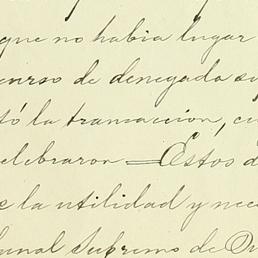 que no habia lugar
curso de denegada su
tó la transaccion, cu
celebraron = Estos d
e la utilidad y nece
bunal Supremo de Qu